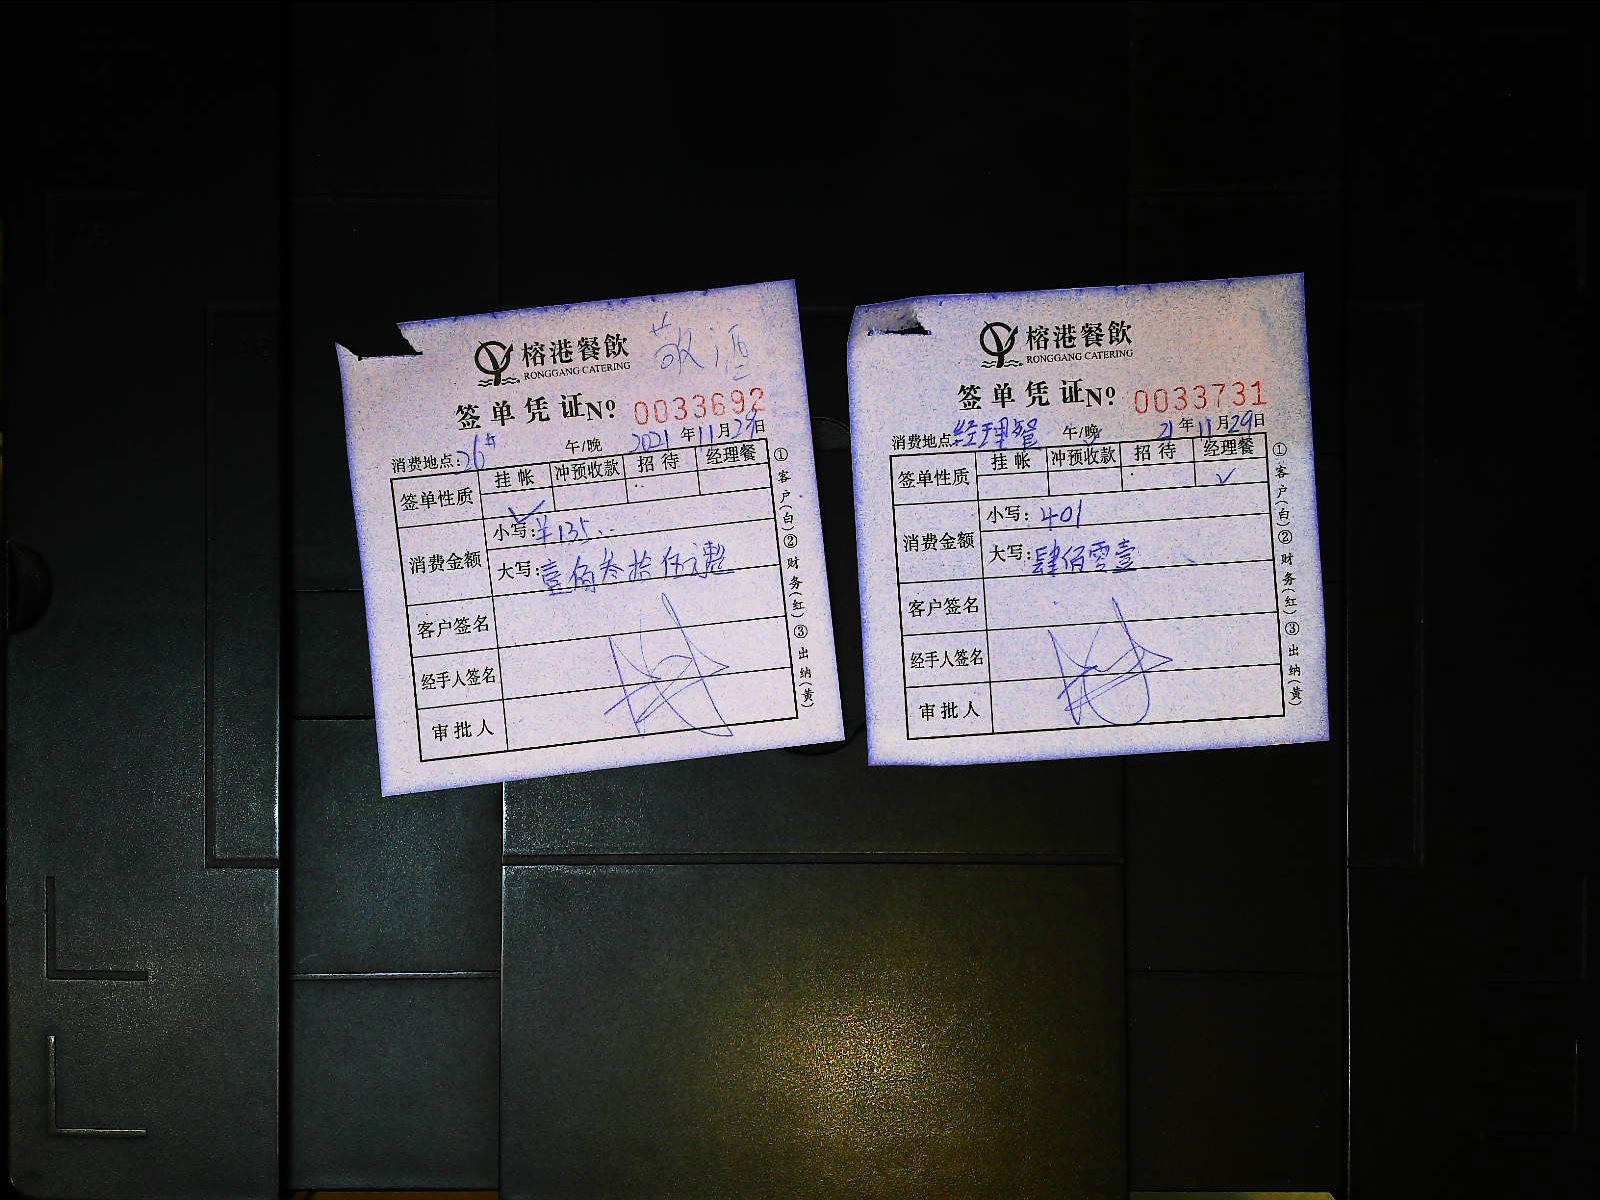 榕港餐飲 敬酒
RONGGANG CATERING
签单凭证 No 0033692
消费地点: 26# 午/晚 2021年11月29日
签单性质 挂帐 冲预收款 招待 经理餐
✓
消费金额 小写: ¥135..
大写: 壹佰叁拾伍元整
客户签名
经手人签名
审批人
①客户(白)②财务(红)③出纳(黄)
榕港餐飲
RONGGANG CATERING
签单凭证 No 0033731
消费地点 经理餐 午/晚 21年11月29日
签单性质 挂帐 冲预收款 招待 经理餐
✓
消费金额 小写: 401
大写: 肆佰零壹
客户签名
经手人签名
审批人
①客户(白)②财务(红)③出纳(黄)